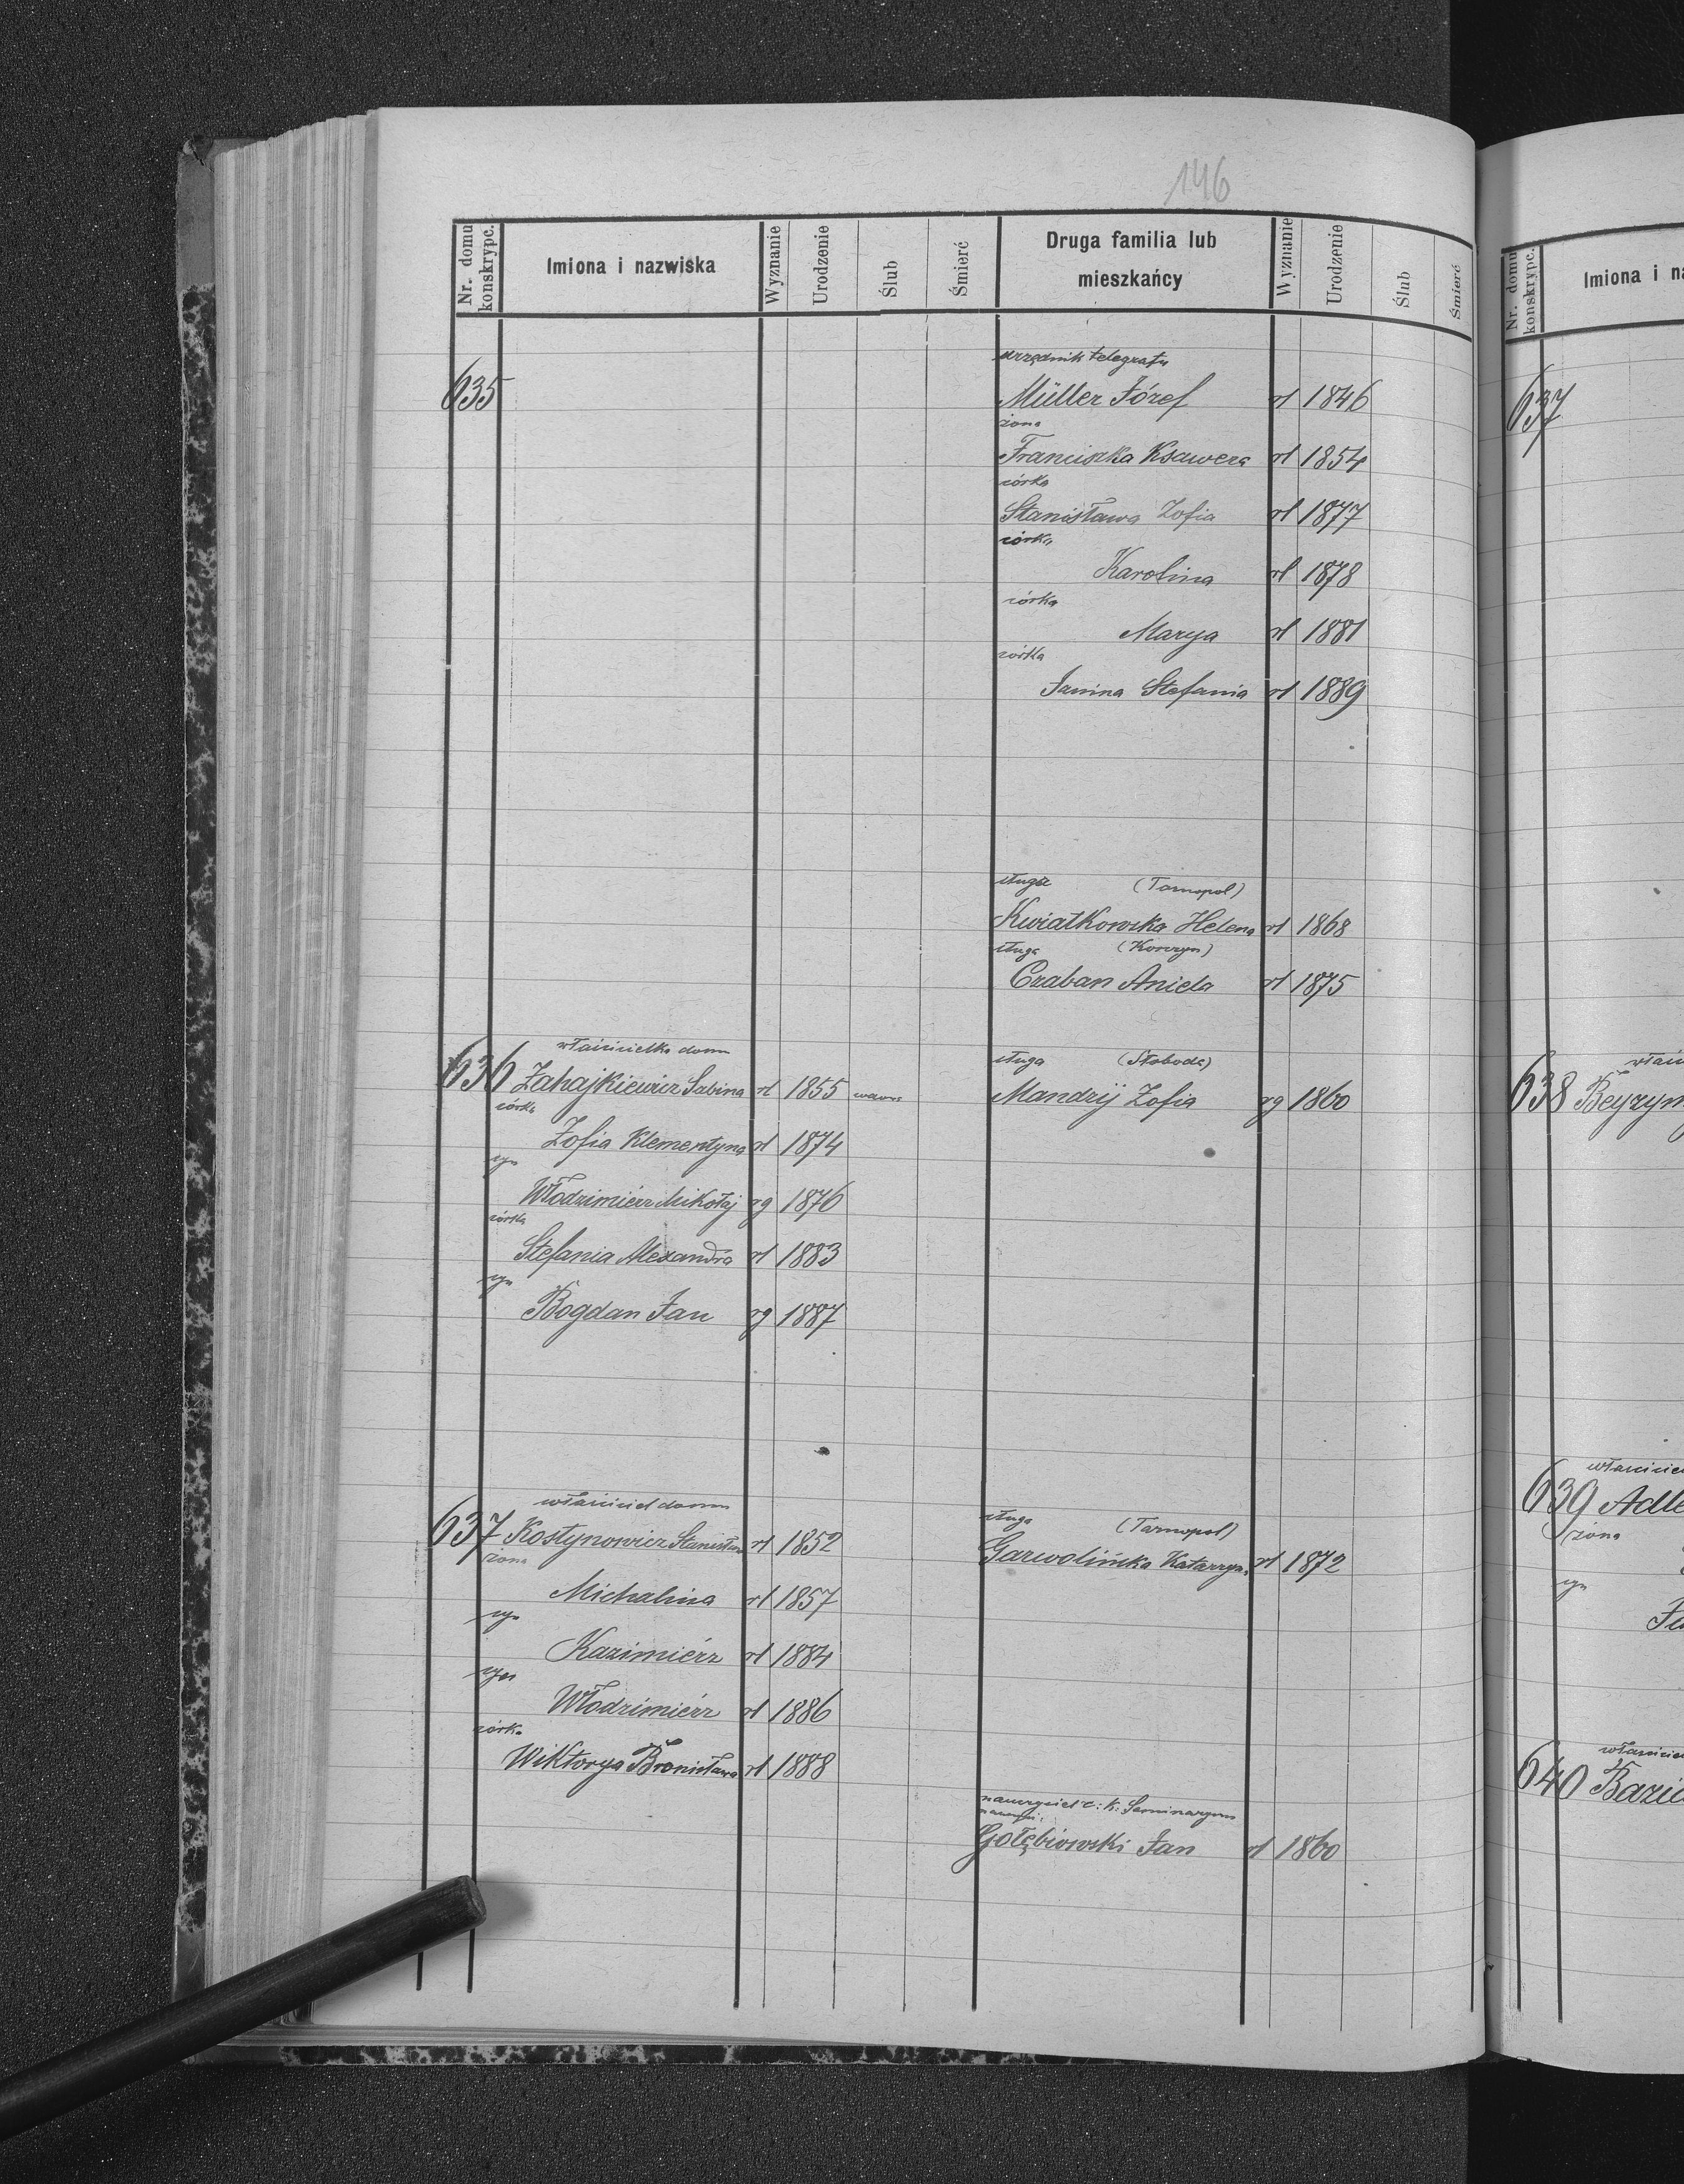 146
Nr. domu konskrypc.
Imiona i nazwiska
Wyznanie
Urodzenie
Ślub
Śmierć
Druga familia lub
mieszkańcy
Wyznanie
Urodzenie
Ślub
Śmierć
urzędnik telegrafu
635 Müller Józef rl 1846
żona
Franciszka Ksawera rl 1854
córka
Stanisława Zofia rl 1877
córka
Karolina rl 1878
córka
Marya rl 1881
córka
Janina Stefania rl 1889
sługa (Tarnopol)
Kwiatkowska Helena rl 1868
sługa (Korczyn)
Czaban Aniela rl 1875
właścicielka domu
636 Zahajkiewicz Sabina rl 1855
córka
Zofia Klementyna rl 1874
syn
Włodzimierz Mikołaj rg 1876
córka
Stefania Alexandra rl 1883
syn
Bogdan Jan rg 1887
sługa (Słoboda)
Mandzij Zofia rg 1860
właściciel domu
637 Kostynowicz Stanisław rl 1852
żona
Michalina rl 1857
syn
Kazimiérz rl 1884
syn
Włodzimiérz rl 1886
córka
Wiktorya Bronisława rl 1888
sługa (Tarnopol)
Garwolińska Katarzyna rl 1872
nauczyciel c: k: Seminaryum
Gołębiowski Jan rl 1860
Nr. domu konskrypc.
Imiona i na
637
właści
638 Beyzym
właściciel
639 Adle
żona
syn
właściciel
640 Bazie